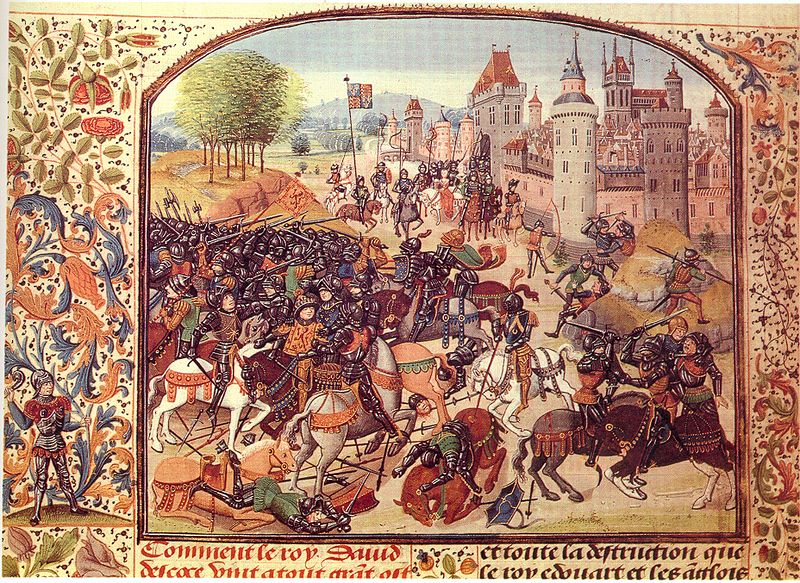 Comment le roy Dauid
descoce vint atout grãt ost
et toute la destruction que
le roy edouart et les ãglois